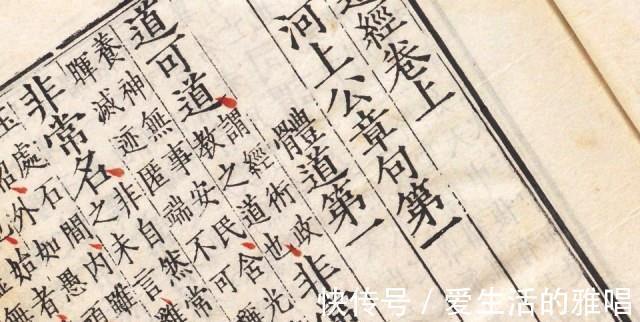 經卷上
河上公章句第一
體道第一
道可道
謂經術政
教之道也
非
養神無事安民含光
暉滅迹匿端不可
非常名
非自然常
未言
處石間內雖
外如愚
始無者
快传号 / 爱生活的雅唱